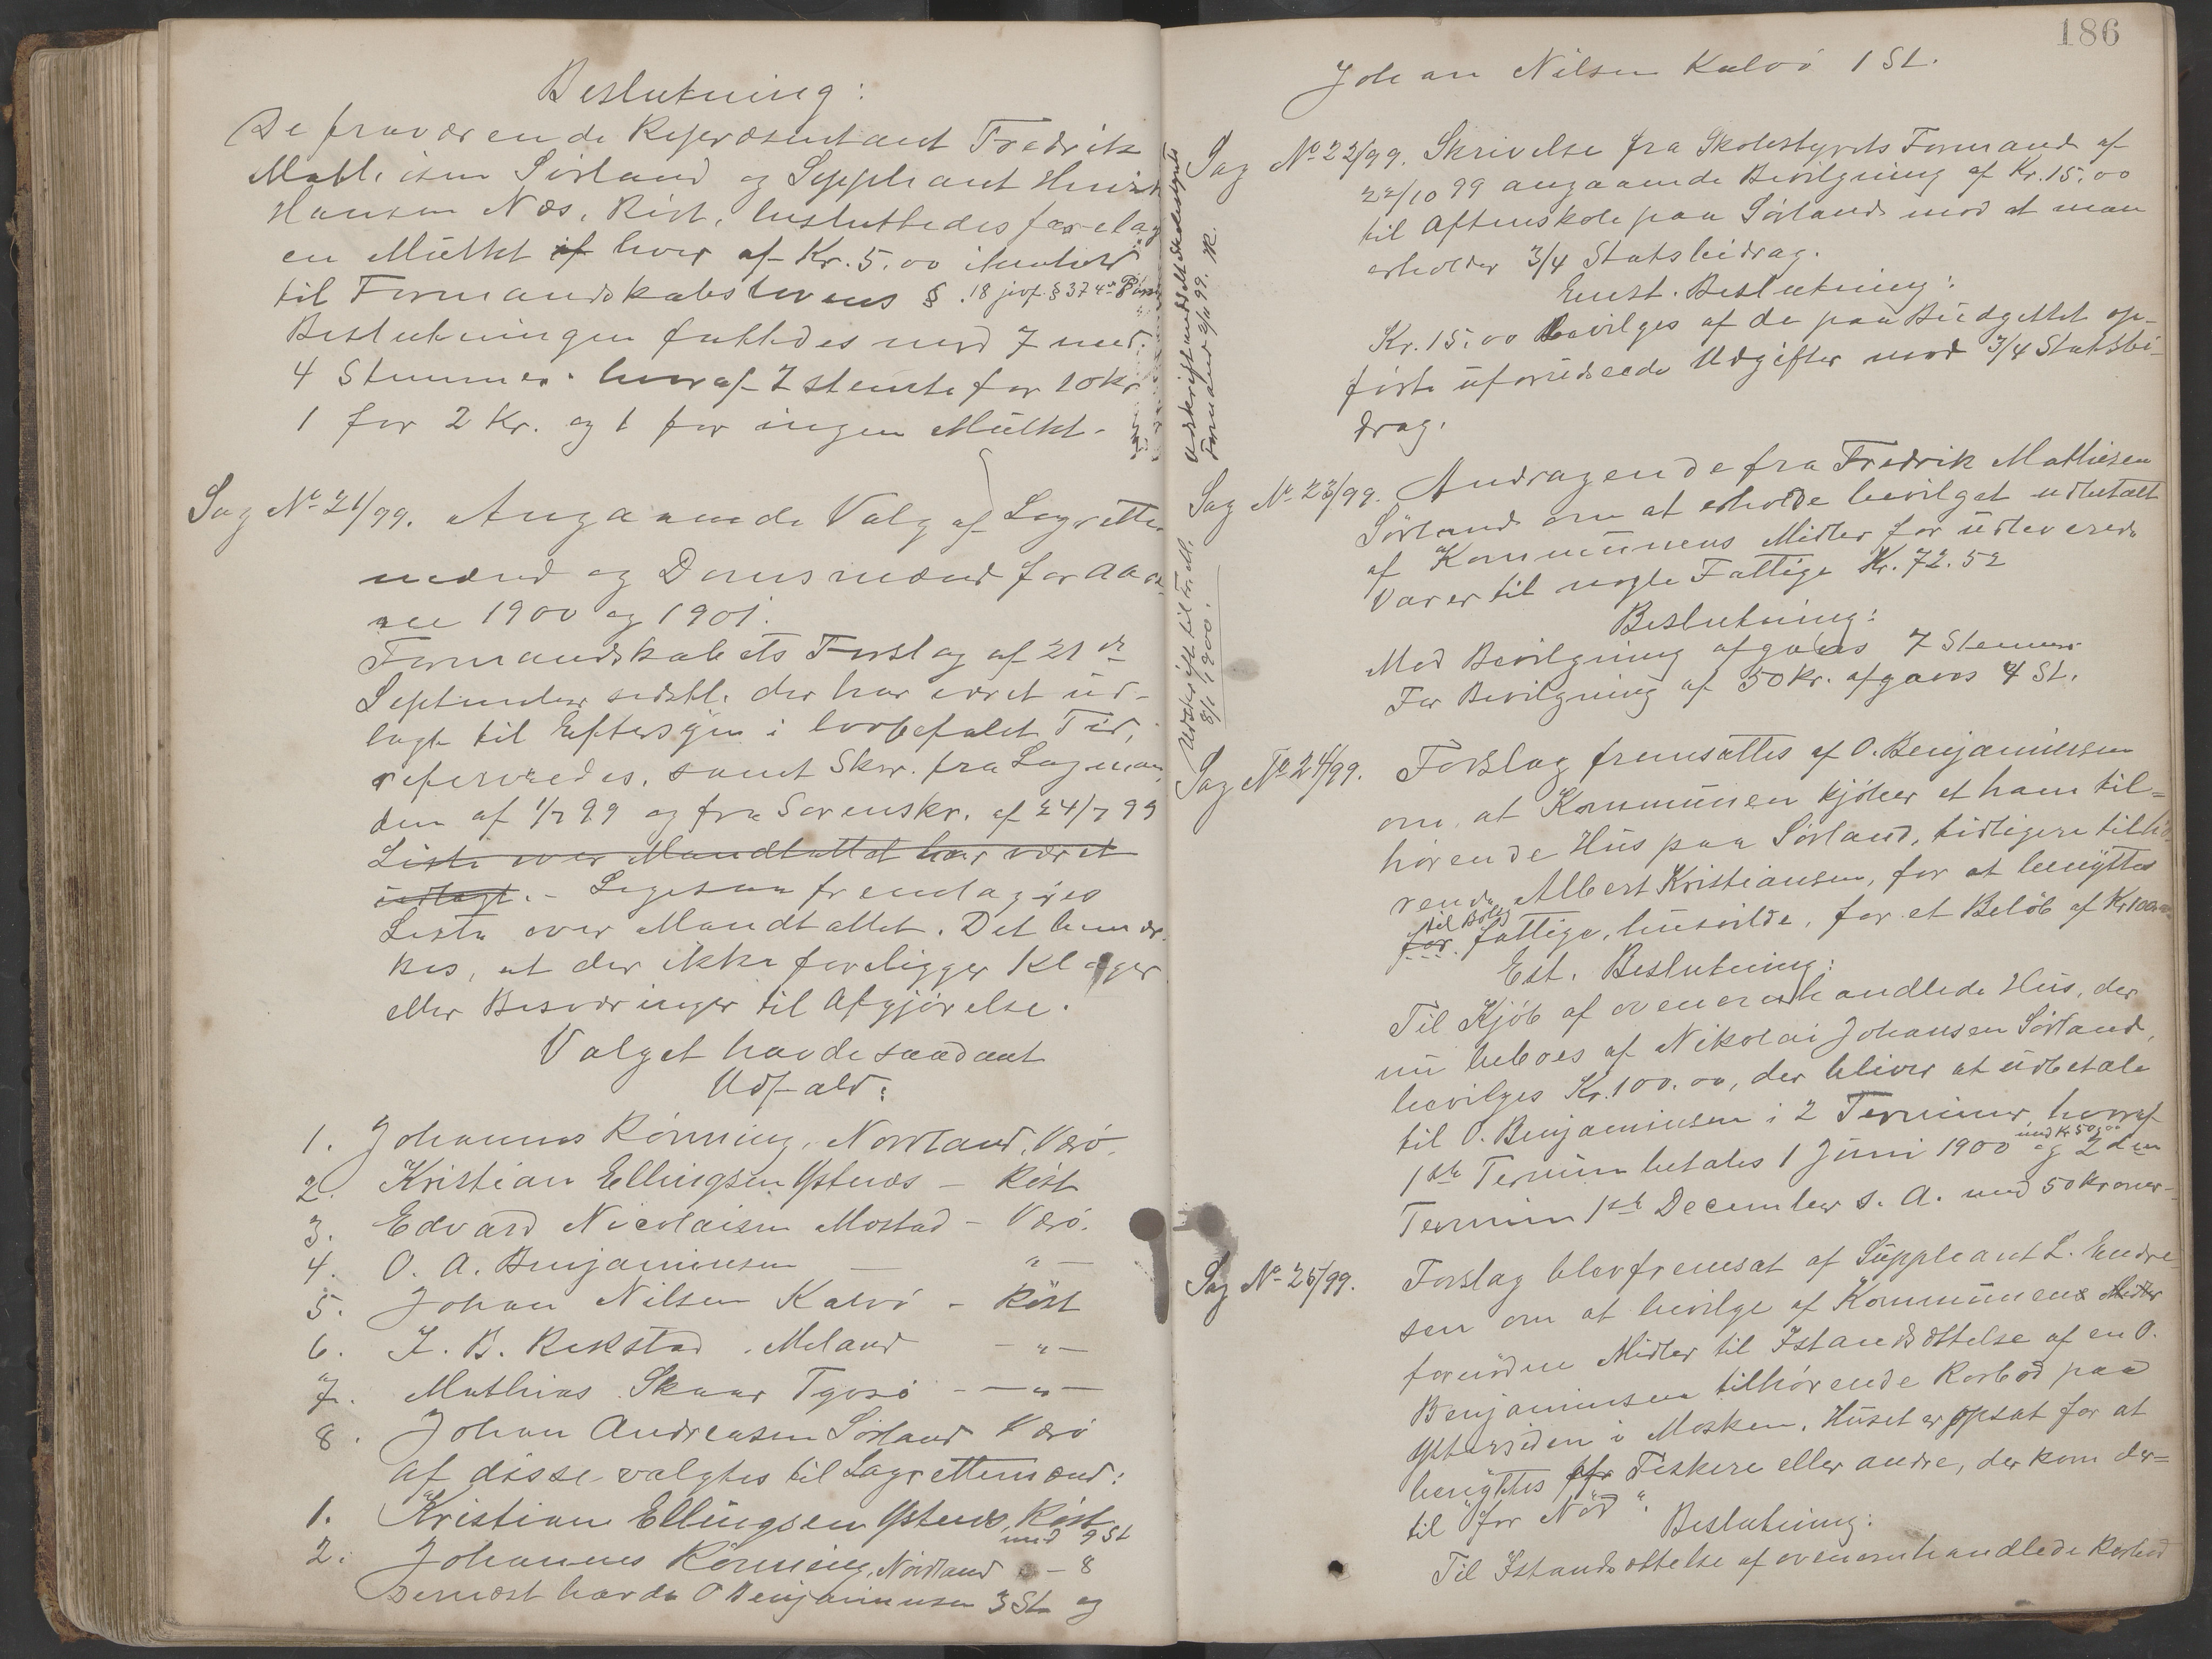 Beslutning:
De fraværende Repræsentant Fredrik
Mathisen Sörland og Suppleant
Hansen Næs, Röst, besluttedes forelag
en Mulkt if hver af Kr. 5,00 i henhold
til Formandskabslovens § 18 jvf. § 37 4de
Beslutningen fattedes med 7 mod
4 Stemmer. hvoraf 2 stemte for 10 kr
1 for 2 Kr. og 1 for ingen Mulkt.
Sag No 21/99. Angaaende Valg af Lagrette-
mænd og Domsmænd for Aar
ne 1900 og 1901.
Formandskabets Forslag af 21de
September sidstl. der har været ud-
lagt til Eftersyn i lovbefalet Tid,
refereredes, samt Skr. fra Lagman
den af 1/7 99 og fra Sorenskr. af 24/7 99
Liste over Mandtallet har været
udlagt. - Ligesom fremlagdes
Liste over Mandtallet. Det bemær-
kes, at der ikke foreligger Klager
eller Besværinger til Afgjörelse.
Valget havde saadant
Udfald:
1. Johannes Rönning, Nordland, Værö.
2. Kristian Ellingsen Ystnæs - Röst
3. Edvard Nicolaisen Mostad - Værö.
4. O. A. Benjaminsen — " —
5. Johan Nilsen Kalvö - Röst
6. J. B. Rekstad. Meland — " —
7. Mathias Skaar Tyvsö - — " —
8. Johan Andreasen Sörland Værö
Af disse valgtes til Lagrettemænd:
1. Kristian Ellingsen Ystnæs, Röst
med 9 St
2. Johannes Rönning, Nordland - 8
Dernæst havde O Benjaminsen 3 St. og
186
Johan Nilsen Kalvö 1 St.
Sag No 22/99. Skrivelse fra Skolestyrets Formand af
22/10 99 angaaende Bevilgning af Kr. 15,00
til Aftenskole paa Sörland mod at man
erholder 3/4 Statsbidrag.
Enst. Beslutning:
Kr. 15,00 bevilges af de paa Budgettet op-
förte uforudseede Udgifter mod 3/4 Statsbi-
drag.
Udskrift meddelt Skolestyrets
Formand 2/11 99.
Sag No 23/99. Andragende fra Fredrik Mathisen
Sörland om at erholde bevilget udbetalt
af Kommunens Midler for udleverede
Varer til nogle Fattige Kr. 72.52
Beslutning:
Mod Bevilgning afgaves 7 Stemmer
For Bevilgning af 50 Kr. afgaves 4 St.
Udskrift til Fr. M.
8/1 1900.
Sag No 24/99. Forslag fremsattes af O. Benjaminsen
om, at Kommunen kjöber et ham til=
hörende Hus paa Sörland, tidligere tilhö-
rende Albert Kristiansen, for at benyttes
til Bolig
for fattige, husvilde, for et Belöb af Kr 100,00
Est. Beslutning:
Til Kjöb af ovenomhandlede Hus, der
nu beboes af Nikolai Johansen Sörland,
bevilges Kr. 100.00, der bliver at udbetale
til O. Benjaminsen i 2 Terminer, hvoraf
1ste Termin betales 1 Juni 1900 med Kr 50,00 og 2den
Termin 1ste December s. A. med 50 Kroner.
Sag No 25/99. Forslag blev fremsat af Suppleant L. Endre-
sen om at bevilge af Kommunens Midler
fornödne Midler til Istandsættelse af en O.
Benjaminsen tilhörende Rorbod paa
Yttersiden i Mosken. Huset er opsat for at
benyttes af Fiskere eller andre, der kom der=
til "for Nöd".
Beslutning:
Til Istandsættelse af ovenomhandlede Rorbod